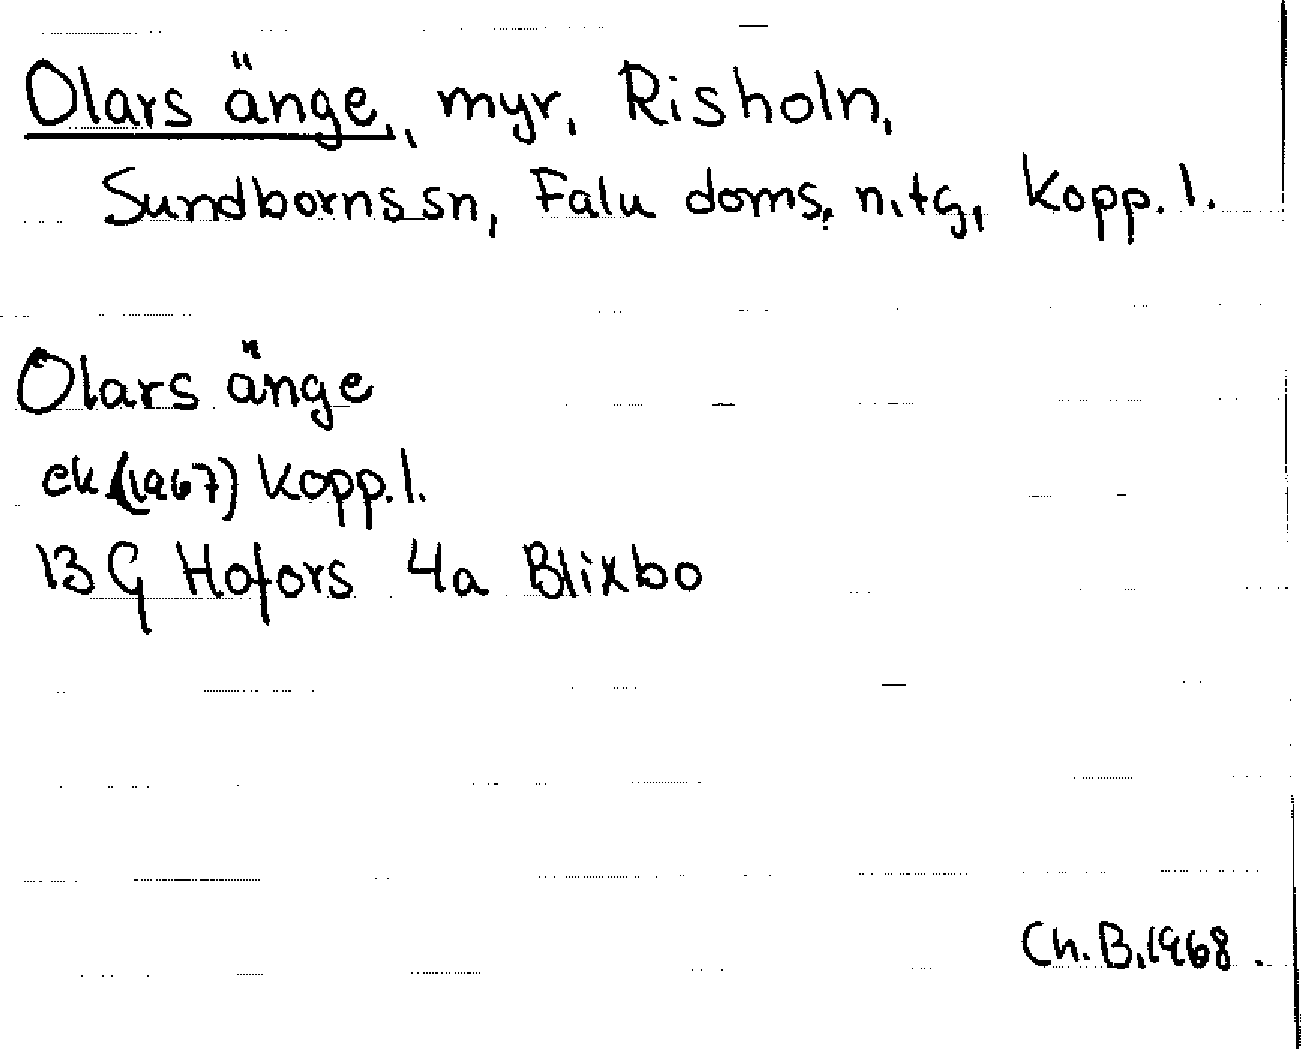 Olars änge, myr, Risholn,
Sundborns sn, Falu doms. n. tg, Kopp. l.
Olars änge
ek (1967) Kopp. l.
13 G Hofors 4a Blixbo
Ch. B. 1968.